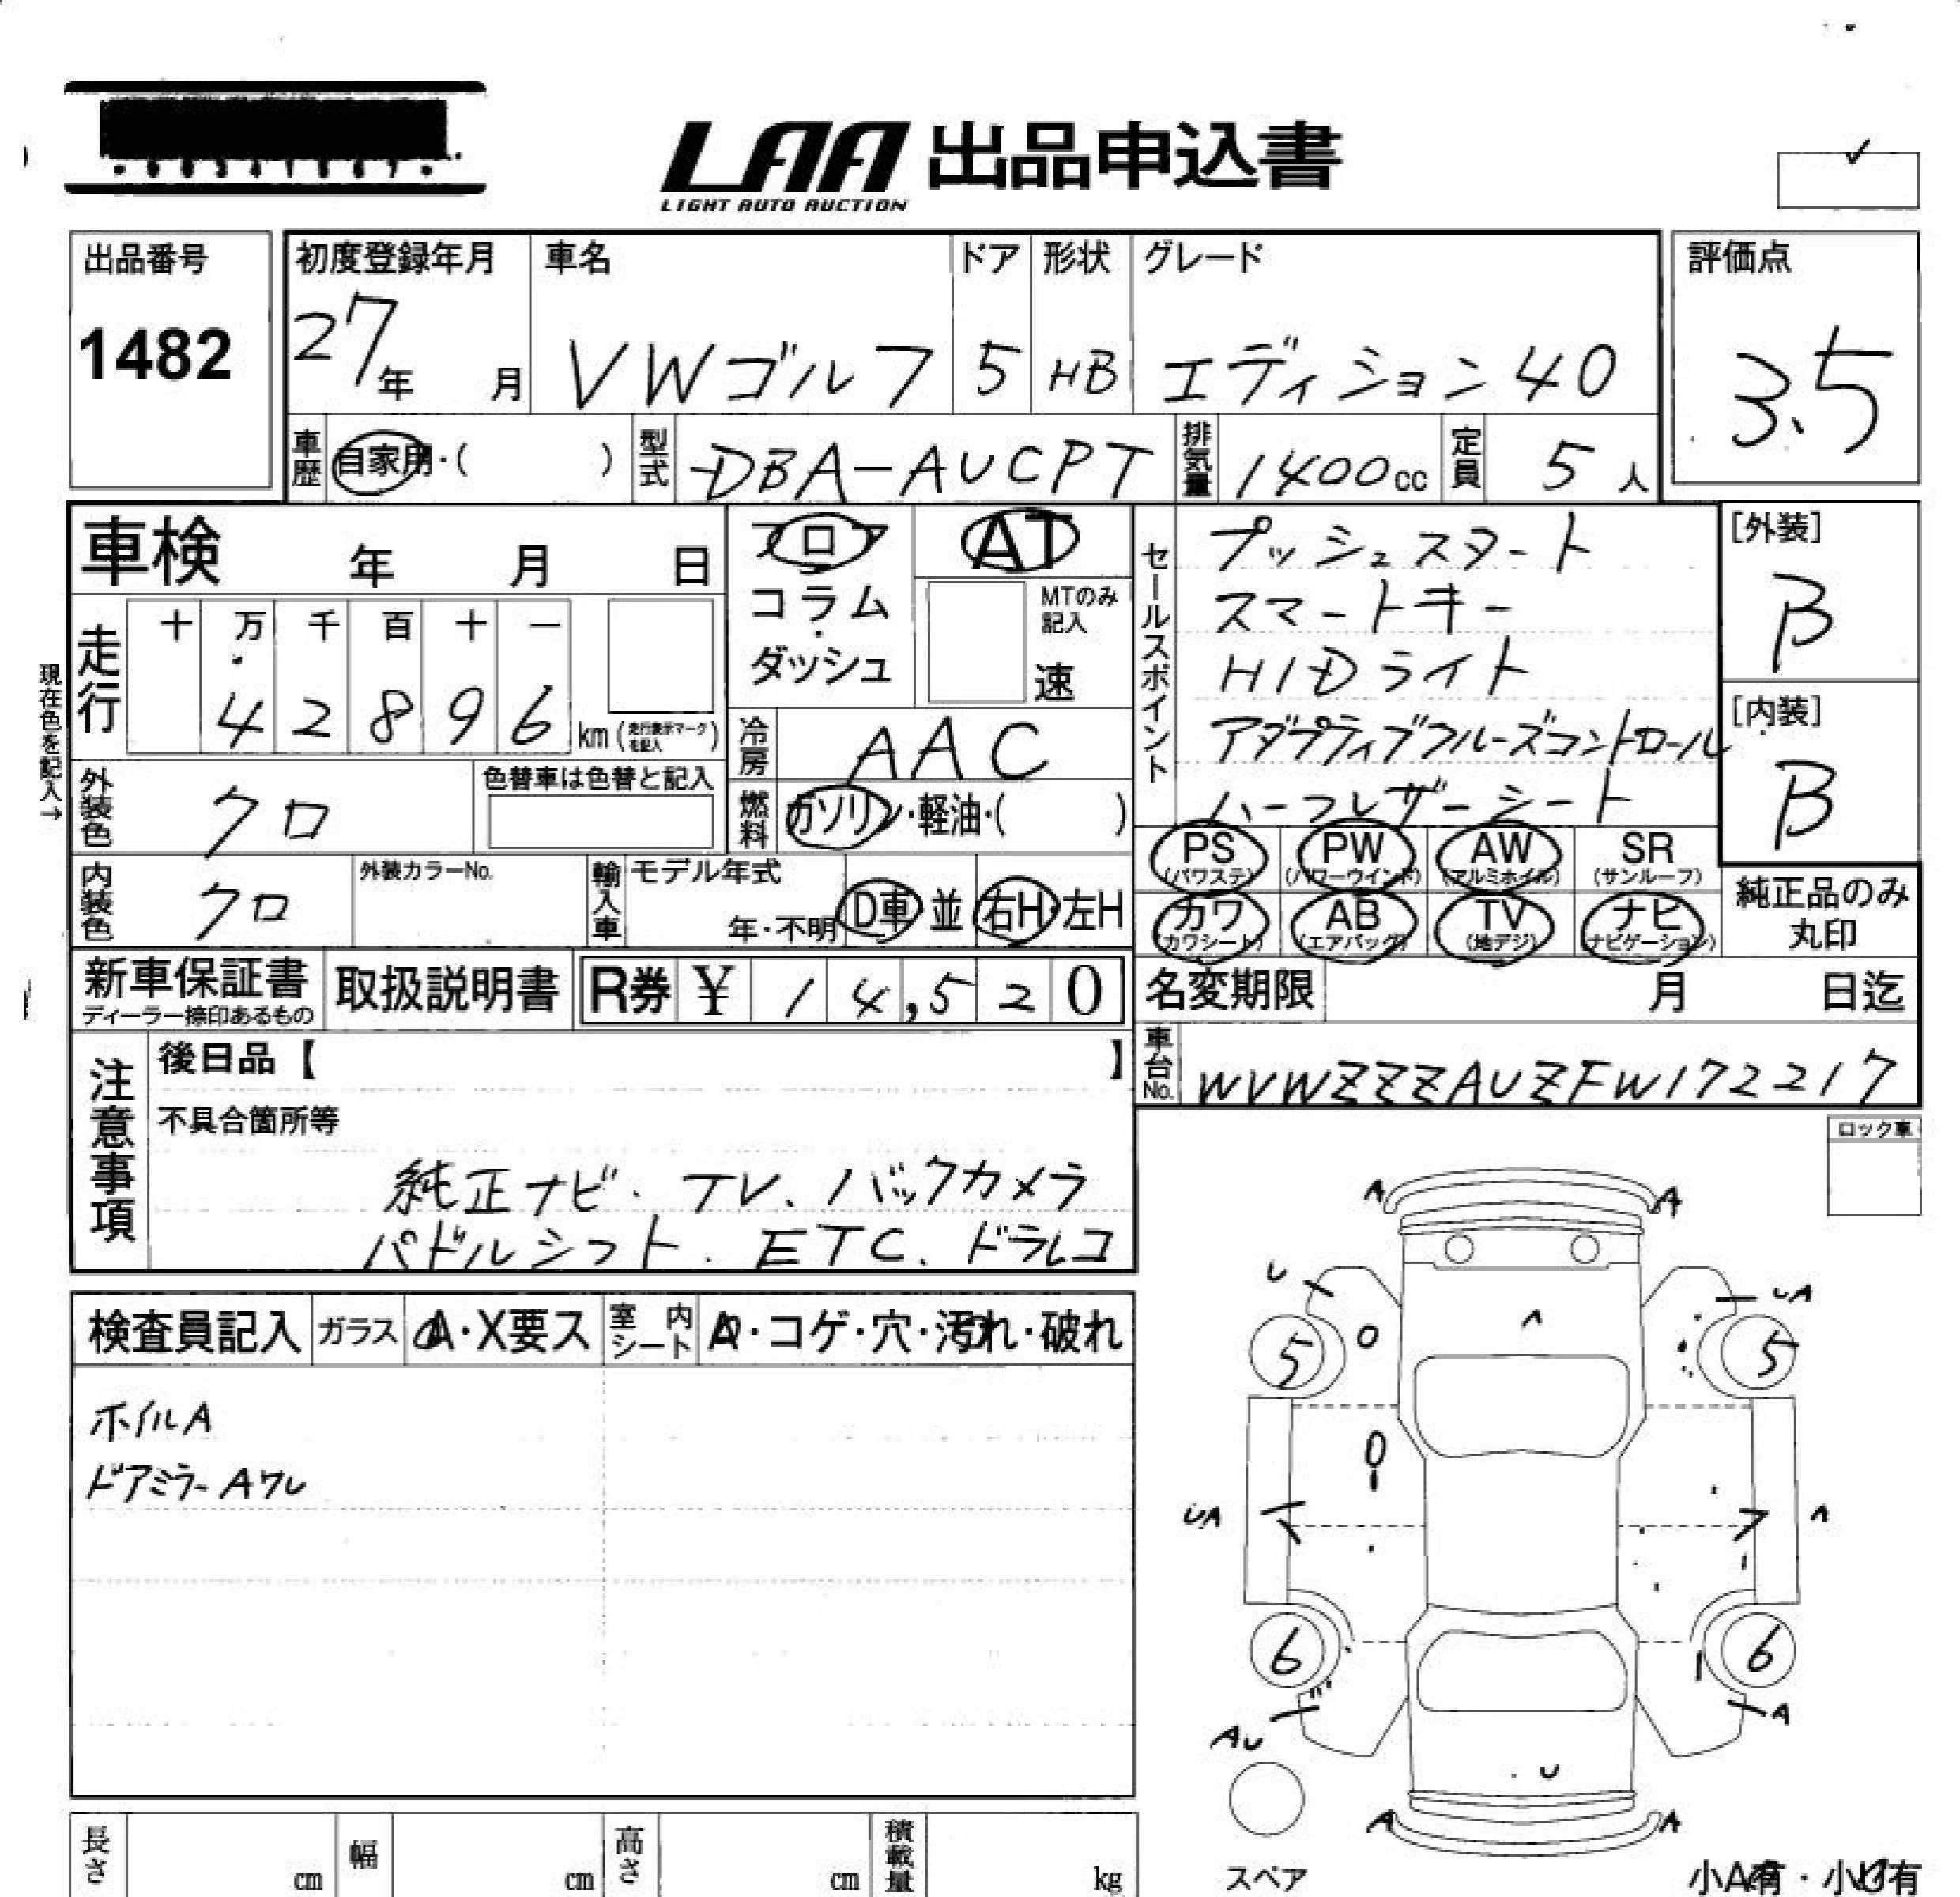 LAA 出品申込書
LIGHT AUTO AUCTION
出品番号
1482
初度登録年月
27年 月
車名
VWゴルフ
ドア
5
形状
HB
グレード
エディション40
評価点
3.5
車歴 自家用・( )
型式 DBA-AUCPT
排気量 1400cc
定員 5人
車検 年 月 日
フロア
コラム
・
ダッシュ
AT
MTのみ
記入
速
セールスポイント
プッシュスタート
スマートキー
HIDライト
アダプティブクルーズコントロール
ハーフレザーシート
[外装]
B
[内装]
B
現在色を記入→
走行
十 万 千 百 十 一
4 2 8 9 6 km(走行表示マークを記入)
冷房 AAC
燃料 ガソリン・軽油・( )
外装色 クロ
色替車は色替と記入
内装色 クロ
外装カラーNo.
輸入車
モデル年式
年・不明
D車・並 右H・左H
PS
(パワステ)
PW
(パワーウインド)
AW
(アルミホイル)
SR
(サンルーフ)
カワ
(カワシート)
AB
(エアバッグ)
TV
(地デジ)
ナビ
(ナビゲーション)
純正品のみ
丸印
新車保証書
ディーラー捺印あるもの
取扱説明書
R券 ¥ 14,520
名変期限 月 日迄
車台No. WVWZZZAUZFW172217
注意事項
後日品【 】
不具合箇所等
純正ナビ、TV、バックカメラ
パドルシフト、ETC、ドラレコ
ロック車
検査員記入
ガラス A・X要ス
室内シート A・コゲ・穴・汚れ・破れ
ホイルA
ドアミラーAワレ
A A
U UA
A
5 5
UA A
6 6
AU A
U
A A
スペア
小A有・小U有
長さ cm
幅 cm
高さ cm
積載量 kg